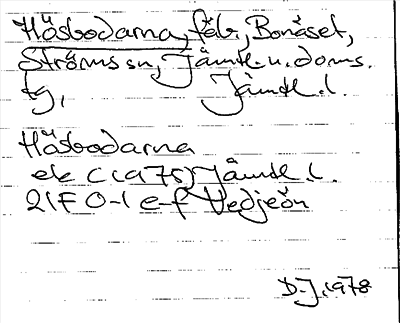 Häsbodarna, fäb, Bonäset,
Ströms sn, Jämtl. n. doms.
tg, Jämtl. l.
Häsbodarna
ek C (1975) Jämtl. l.
21F 0-1 e-f Vedjeön
D.J. 1978